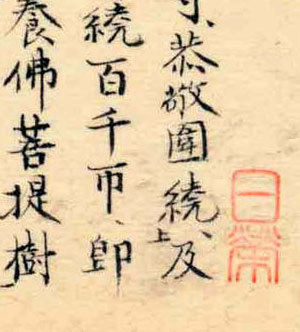 日榮
恭敬圍繞上、及
繞百千帀、即
養佛菩提樹